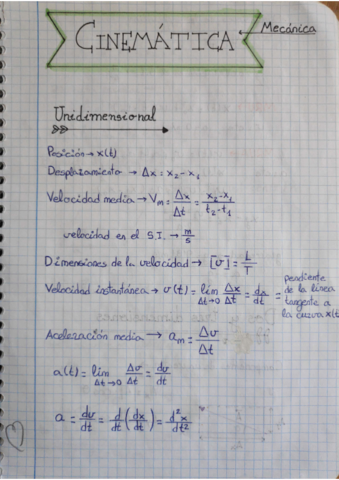 CINEMÁTICA ← Mecánica
Unidimensional
Posición → x(t)
Desplazamiento → Δx = x₂ - x₁
Velocidad media → Vₘ = Δx/Δt = (x₂ - x₁)/(t₂ - t₁)
velocidad en el S.I. → m/s
Dimensiones de la velocidad → [v] = L/T
Velocidad instantánea → v(t) = lím Δt→0 Δx/Δt = dx/dt = pendiente de la línea tangente a la curva x(t
Aceleración media → aₘ = Δv/Δt
a(t) = lím Δt→0 Δv/Δt = dv/dt
a = dv/dt = d/dt (dx/dt) = d²x/dt²